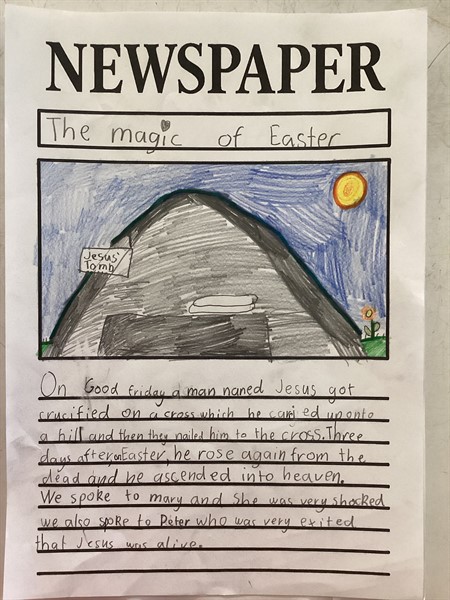 NEWSPAPER
The magic of Easter
Jesus'
Tomb
On Good friday a man naned Jesus got
crucified on a cross which he carried up onto
a hill and then they nailed him to the cross. Three
days after, on Easter, he rose again from the
dead and he ascended into heaven.
We spoke to mary and She was very shocked
we also spoke to Peter who was very exited
that Jesus was alive.